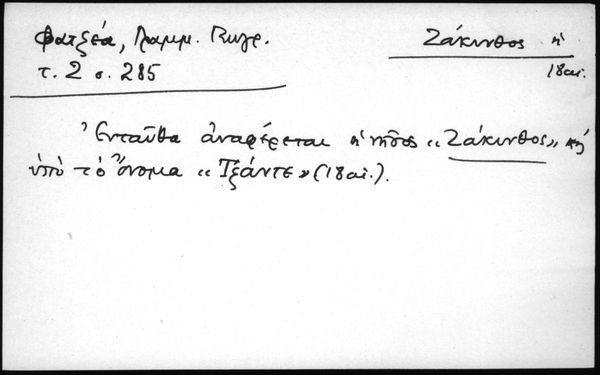 Φατζέα, Γραμμ. Γεωγρ.
τ. 2 σ. 285
Ζάκυνθος ἡ
18 αἰ.
Ἐνταῦθα ἀναφέρεται ἡ νῆσος «Ζάκυνθος» καὶ
ὑπὸ τὸ ὄνομα «Τζάντε» (18 αἰ.).